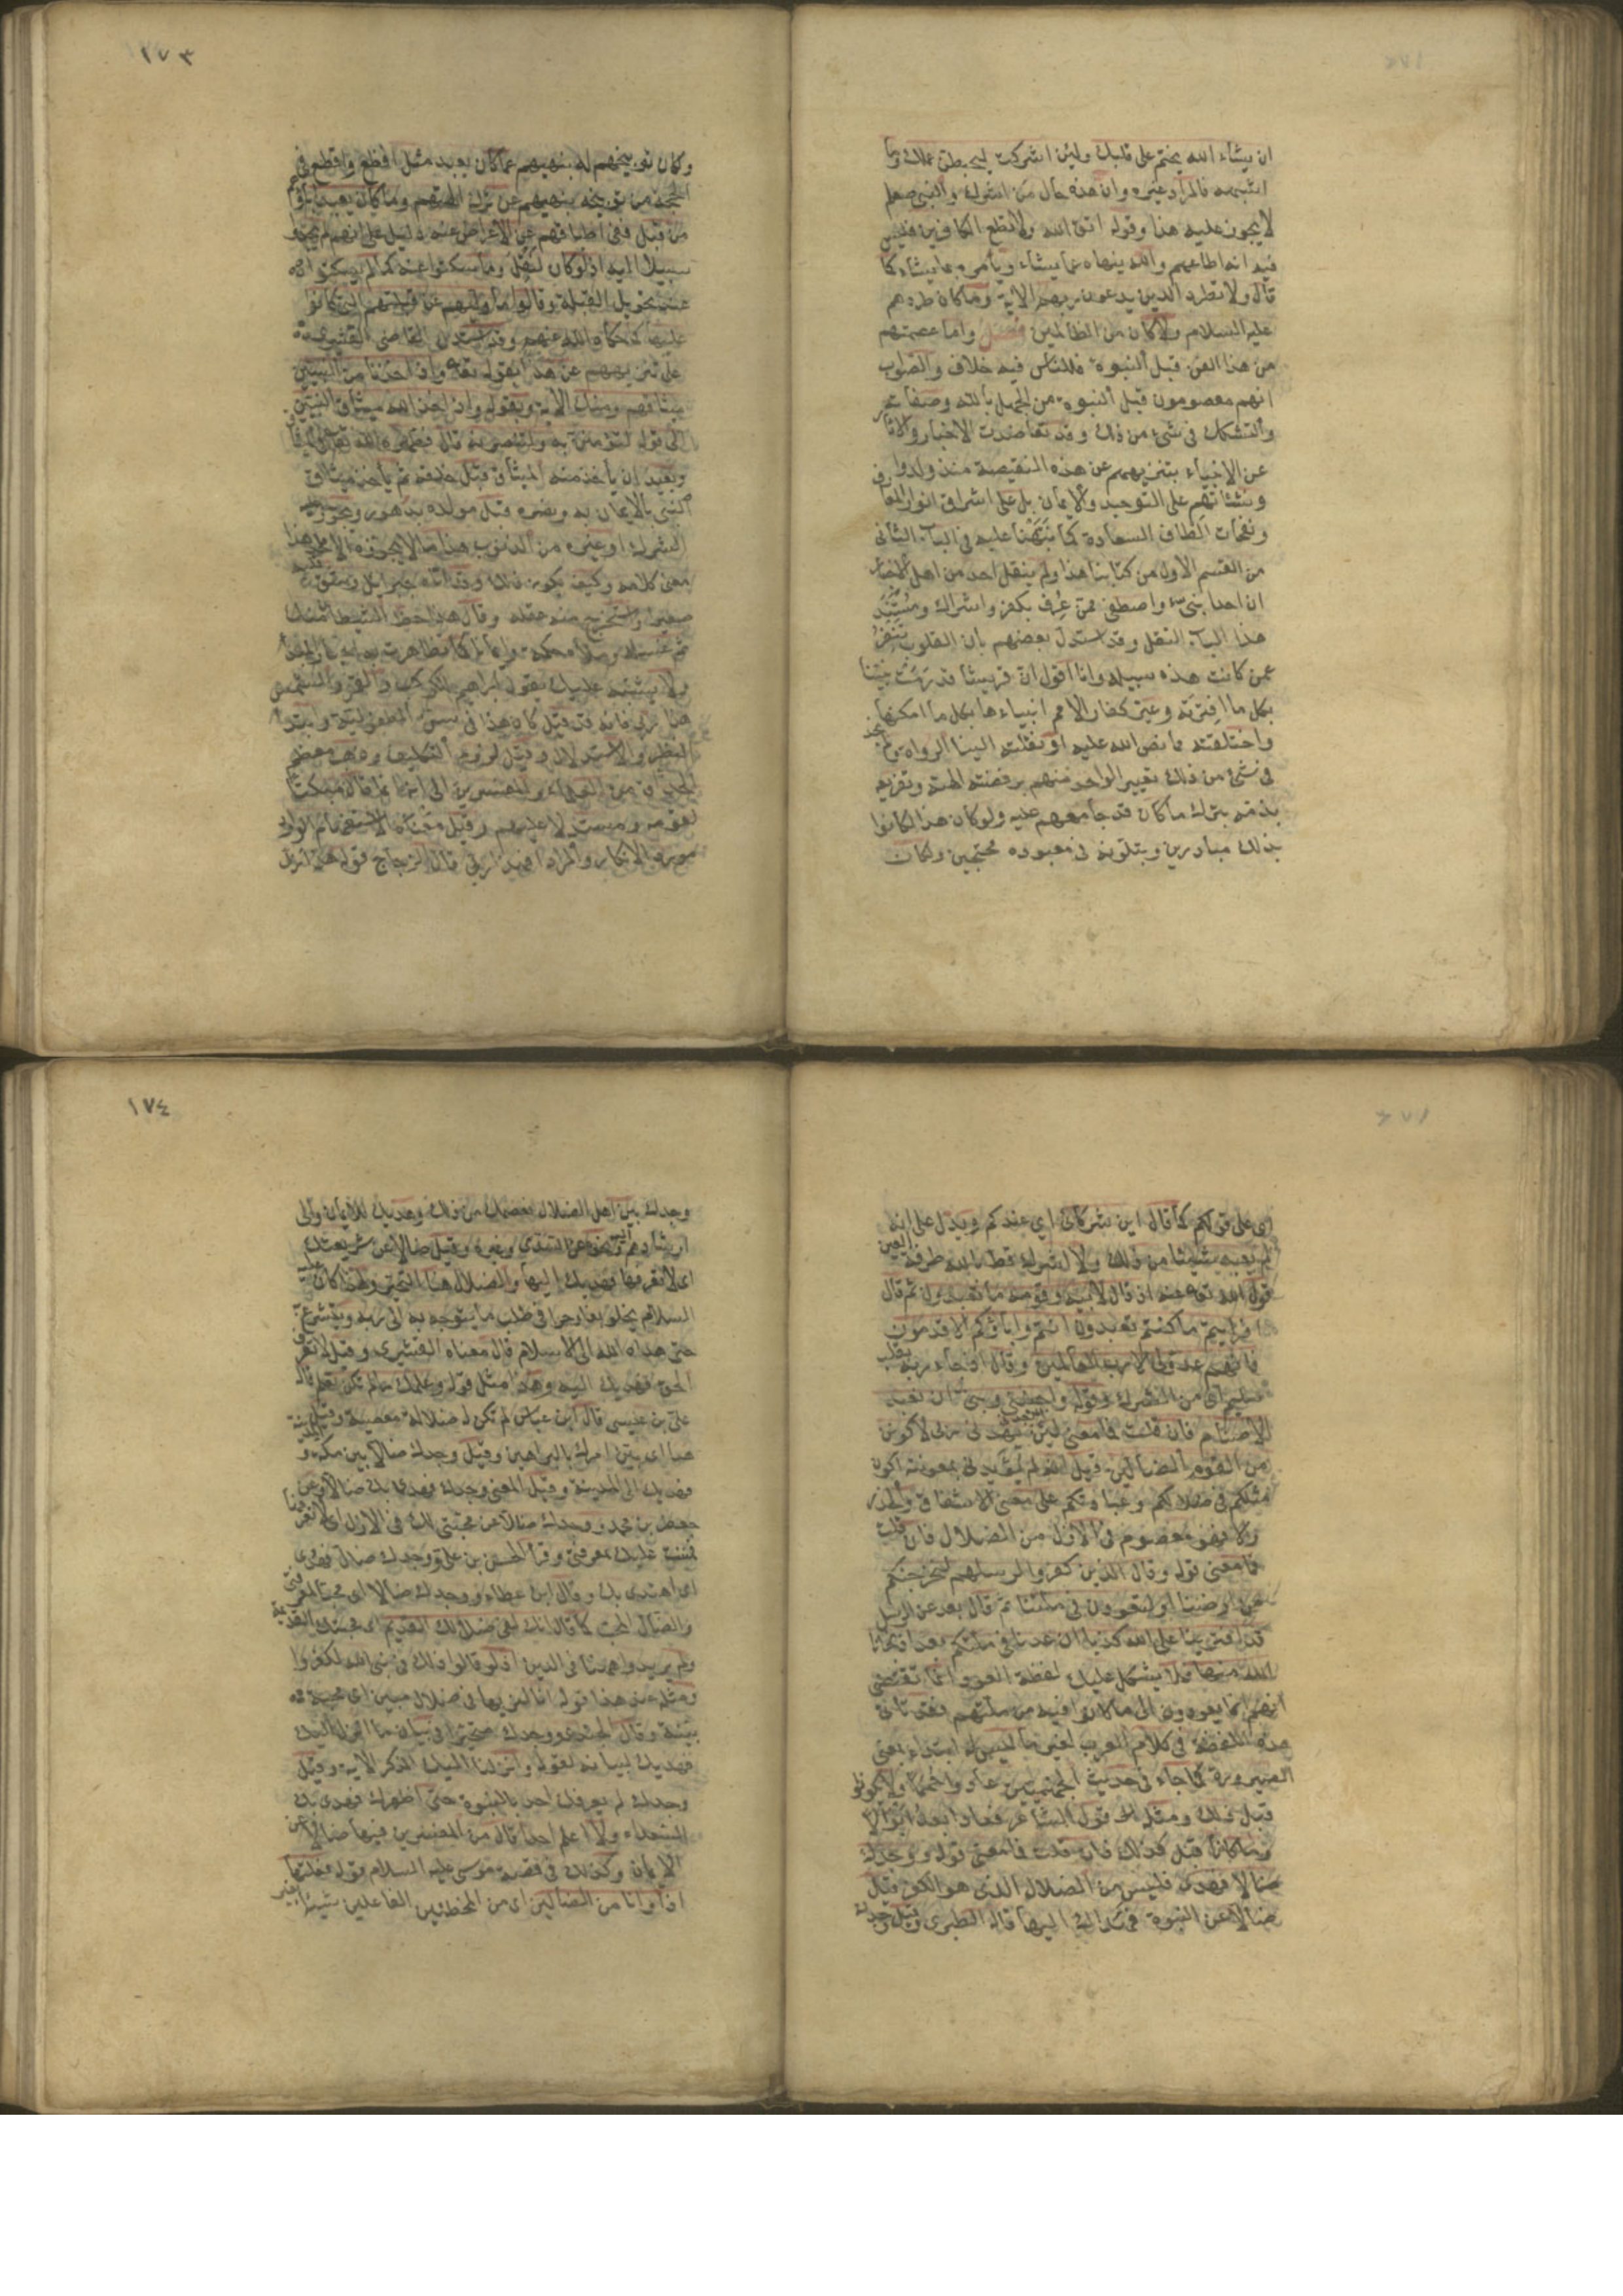 ان يشاء الله يختم على قلبك ولئن اشركت ليحبطن عملك وما
اشبهه فالمراد غيره وان هذه حال من اشرك والنبي صلعم
لا يجوز عليه هذا وقوله اتق الله ولا تطع الكافرين فليس
فيه انه اطاعهم والله ينهاه عما يشاء ويأمره بما يشاء كما
قال ولا تطرد الذين يدعون ربهم الآية وما كان طردهم
عليه السلام ولا كان من الظالمين فصل واما عصمتهم
من هذا الفن قبل النبوة فللناس فيه خلاف والصواب
انهم معصومون قبل النبوة من الجهل بالله وصفاته
والتشكك في شئ من ذلك وقد تعاضدت الاخبار والآثار
عن الانبياء بتنزيههم عن هذه النقيصة منذ ولدوا
ونشأتهم على التوحيد والايمان بل على اشراق انوار المعارف
ونفحات الطاف السعادة كما نبهنا عليه في الباب الثاني
من القسم الاول من كتابنا هذا ولم ينقل احد من اهل الاخبار
ان احدا نبئ واصطفي ممن عرف بكفر واشراك ومستند
هذا الباب النقل وقد استدل بعضهم بان القلوب تنفر
عمن كانت هذه سبيله وانا اقول ان قريشا قد رمت نبينا
بكل ما افترته وعير كفار الامم انبياءها بكل ما امكنها
واختلقته مما نص الله عليه او نقلته الينا الرواة ولم نجد
في شئ من ذلك تعييرا لواحد منهم برفضه آلهته وتقريعه
بذمه بترك ما كان قد جامعهم عليه ولو كان هذا لكانوا
بذلك مبادرين وبتلونه في معبوده محتجين ولكان
١٧٣
وكان توبيخهم له بنهيهم عما كان يعبد مثل افظع واقطع في
الحجة من توبيخه بنهيهم عن ترك آلهتهم وما كان يعبد آباؤهم
من قبل ففي اطباقهم على الاعراض عنه دليل على انهم لم يجدوا
سبيلا اليه اذ لو كان لنقل وما سكتوا عنه كما لم يسكتوا
عند تحويل القبلة وقالوا ما ولاهم عن قبلتهم التي كانوا
عليها كما حكاه الله عنهم وقد استدل القاضي القشيري
على تنزيههم عن هذا بقوله تعالى واذ اخذنا من النبيين
ميثاقهم ومنك الآية وبقوله واذ اخذ الله ميثاق النبيين
الى قوله لتؤمنن به ولتنصرنه قال فطهره الله تعالى في الميثاق
وبعيد ان يأخذ منه الميثاق قبل خلقه ثم يأخذ ميثاق
النبيين بالايمان به ونصره قبل مولده بدهور ويجوز
الشرك او غيره من الذنوب هذا ما لا يجوزه الا ملحد هذا
معنى كلامه وكيف يكون ذلك وقد اتاه جبرائيل وشق قلبه
صغيرا واستخرج منه علقة وقال هذا حظ الشيطان منك
ثم غسله وملأه حكمة وايمانا كما تظاهرت به اخبار المبدأ
ولا يشتبه عليك بقول ابراهيم في الكوكب والقمر والشمس
هذا ربي فانه قد قيل كان هذا في سن الطفولية وابتداء
النظر والاستدلال وقبل لزوم التكليف وذهب معظم
الحذاق من العلماء والمفسرين الى انه انما قال ذلك مبكتا
لقومه ومستدلا عليهم وقيل معناه الاستفهام الوارد
مورد الانكار والمراد افهذا ربي قال الزجاج قوله هذا ربي
اى على قولكم كما قال اين شركائي اي عندكم ويدل على انه
لم يعبد شيئا من ذلك ولا اشرك قط بالله طرفة العين
قول الله تعالى عنه اذ قال لابيه وقومه ما تعبدون ثم قال
افرأيتم ما كنتم تعبدون انتم وآباؤكم الاقدمون
فانهم عدو لي الا رب العالمين وقال اذ جاء ربه بقلب
سليم اى من الشرك وقوله واجنبني وبني ان نعبد
الاصنام فان قلت فما معنى لئن لم يهدني ربي لاكونن
من القوم الضالين قيل انه لم يؤيدني بمعونته اكون
مثلكم في ضلالكم وعبادتكم على معنى الاشفاق والحذر
والا فهو معصوم في الازل من الضلال فان قلت
فما معنى قوله وقال الذين كفروا لرسلهم لنخرجنكم
من ارضنا او لتعودن في ملتنا ثم قال بعد عن الرسل
قد افترينا على الله كذبا ان عدنا في ملتكم بعد اذ نجانا
الله منها فلا يشكل عليك لفظة العود وانما تقتضي
انهم انما يعودون الى ما كانوا فيه من ملتهم فقد تأتي
هذه اللفظة في كلام العرب لغير ما ليس له ابتداء بمعنى
الصيرورة كما جاء في حديث الجهنميين عادوا حمما ولم يكونوا
قبل ذلك ومثله قول الشاعر فعادا بعد ابوالا
وما كانا قبل كذلك فان قلت فما معنى قوله ووجدك
ضالا فهدى فليس من الضلال الذي هو الكفر قيل
ضالا عن النبوة فهداك اليها قاله الطبري وقيل وجدك
١٧٤
وجدك بين اهل الضلال فعصمك من ذلك وهديك للايمان والى
ارشادهم ونحوه عن السدي وغيره وقيل ضالا عن شريعتك
اى لا تعرفها فهديك اليها والضلال هنا التحير ولهذا كان عليه
السلام يخلو بغار حرا في طلب ما يتوجه به الى ربه ويتشرع به
حتى هداه الله الى الاسلام قال معناه القشيري وقيل لا تعرف
الحق فهديك اليه وهذا مثل قوله وعلمك ما لم تكن تعلم قاله
علي بن عيسى قال ابن عباس لم تكن له ضلالة معصية وقيل
هدى اى بين امرك بالبراهين وقيل وجدك ضالا بين مكة و المدينة
فهديك الى المدينة وقيل المعنى وجدك فهدى بك ضالا وعن
جعفر بن محمد ووجدك ضالا عن محبتي لك في الازل اى لا تعرفها
فمننت عليك بمعرفتي وقرأ الحسن بن علي ووجدك ضال فهدى
اى اهتدى بك وقال ابن عطاء ووجدك ضالا اى محبا لمعرفتي
والضال المحب كما قال انك لفي ضلالك القديم اى محبتك القديمة
ولم يريدوا ههنا في الدين اذ لو قالوا ذلك في نبي الله لكفروا
ومثله عند هذا قوله انا لنريها في ضلال مبين اى محبة
بينة وقال الجنيد ووجدك متحيرا في بيان ما انزل اليك
فهديك لبيانه لقوله وانزلنا اليك الذكر الآية وقيل
وجدك لم يعرفك احد بالنبوة حتى اظهرك فهدى بك
السعداء ولا اعلم احدا قال من المفسرين فيها ضالا عن
الايمان وكذلك في قصة موسى عليه السلام قوله فعلتها
اذا وانا من الضالين اى من المخطئين الفاعلين شيئا بغير